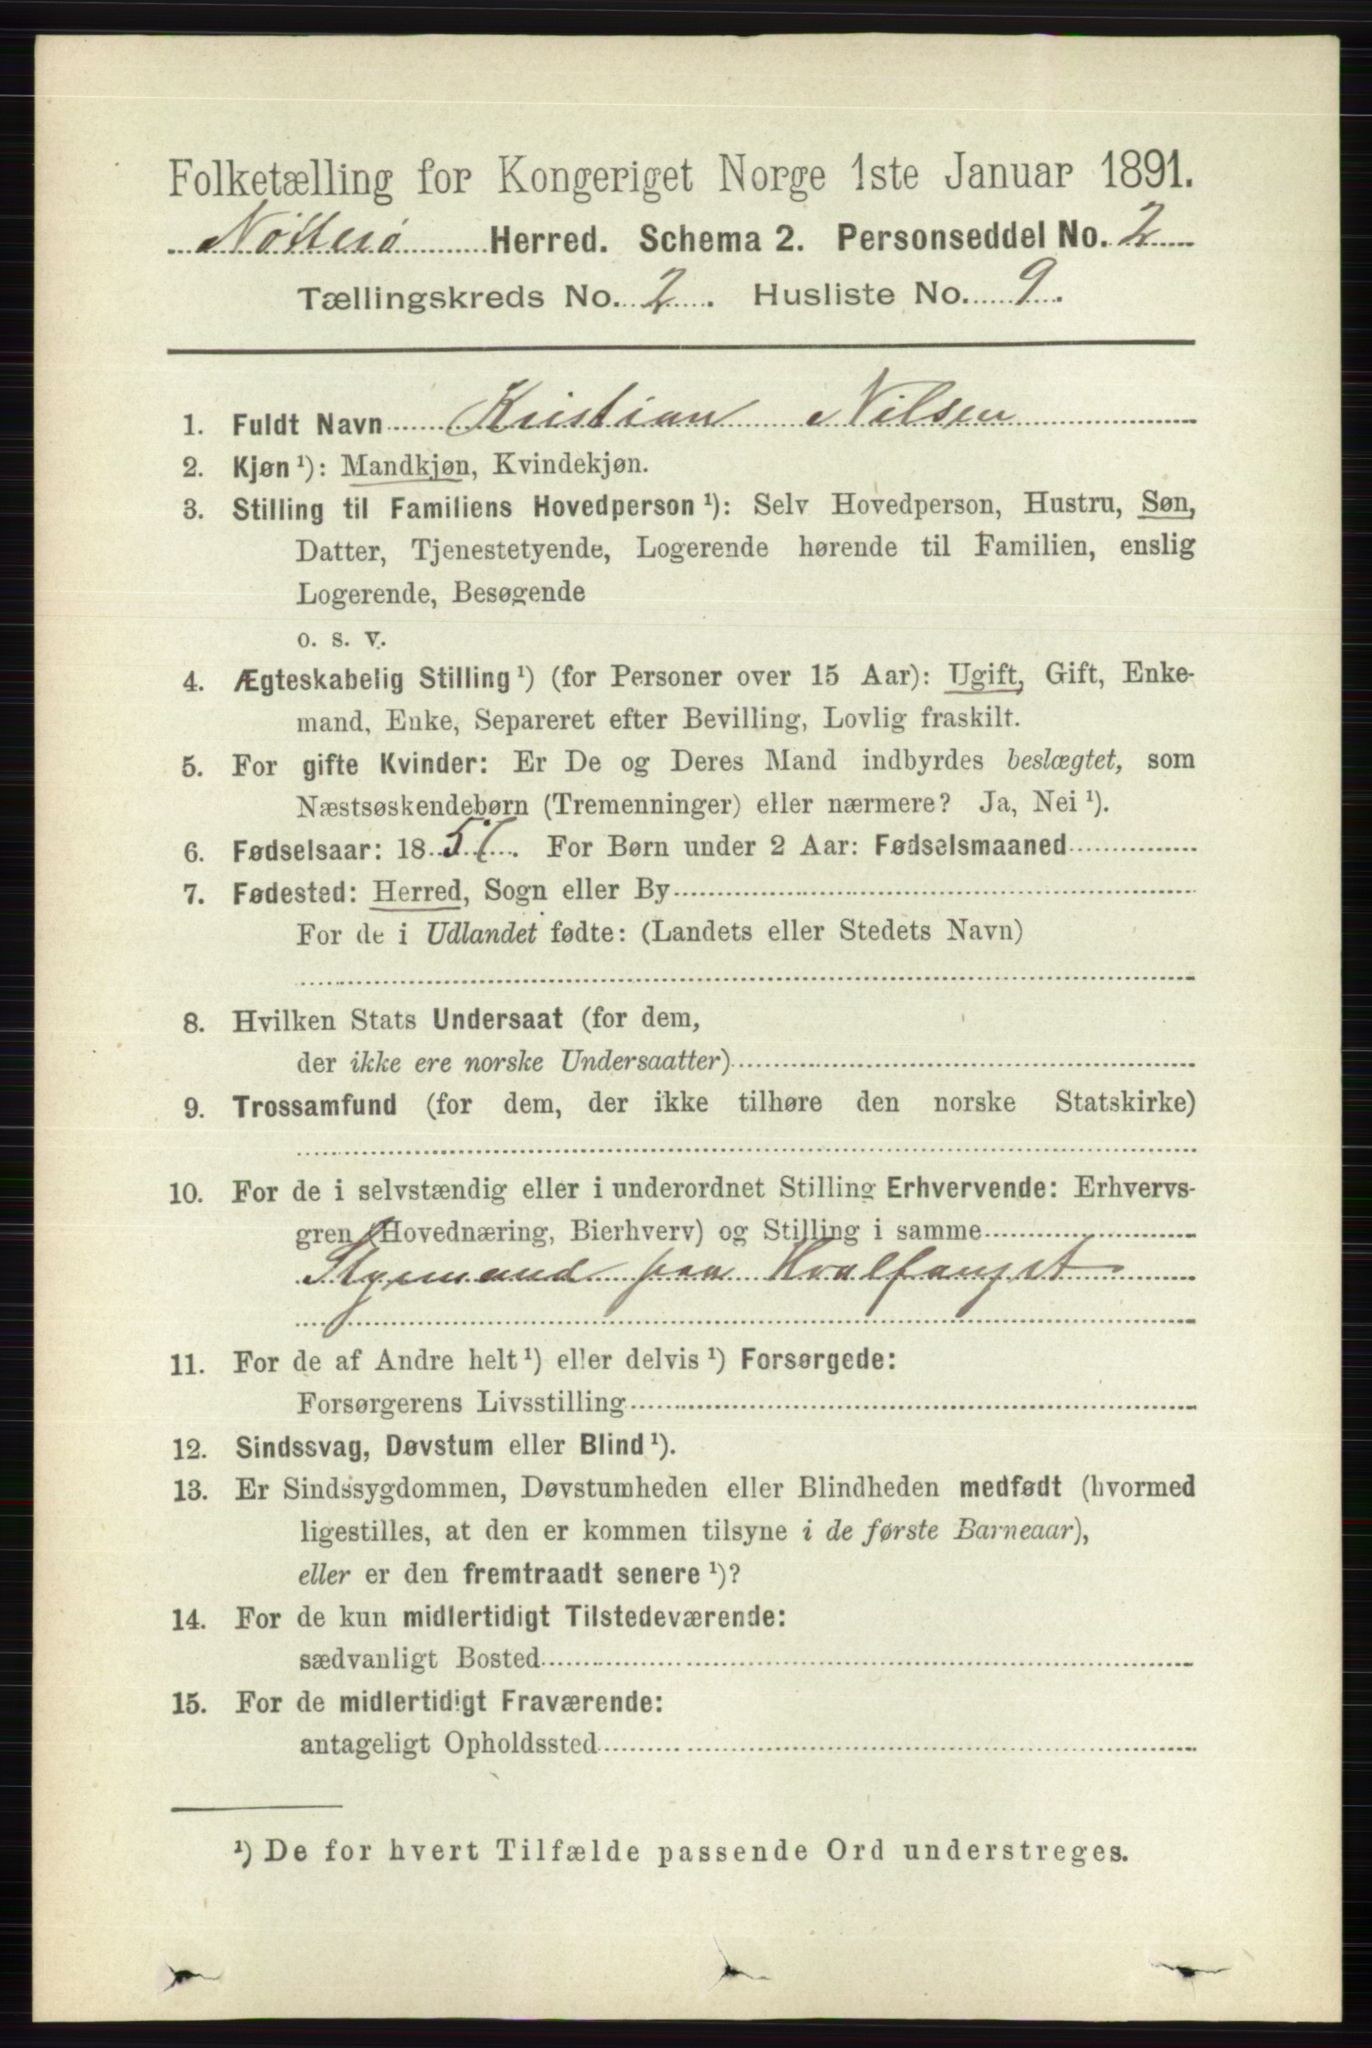 Folketælling for Kongeriget Norge 1ste Januar 1891.
Nøtterø Herred. Schema 2. Personseddel No. 2
Tællingskreds No. 2. Husliste No. 9.
1. Fuldt Navn Kristian Nilsen
2. Kjøn ¹): Mandkjøn, Kvindekjøn.
3. Stilling til Familiens Hovedperson ¹): Selv Hovedperson, Hustru, Søn,
Datter, Tjenestetyende, Logerende hørende til Familien, enslig
Logerende, Besøgende
o. s. v.
4. Ægteskabelig Stilling ¹) (for Personer over 15 Aar): Ugift, Gift, Enke-
mand, Enke, Separeret efter Bevilling, Lovlig fraskilt.
5. For gifte Kvinder: Er De og Deres Mand indbyrdes beslægtet, som
Næstsøskendebørn (Tremenninger) eller nærmere? Ja, Nei ¹).
6. Fødselsaar: 18 . For Børn under 2 Aar: Fødselsmaaned
7. Fødested: Herred, Sogn eller By
For de i Udlandet fødte: (Landets eller Stedets Navn)
8. Hvilken Stats Undersaat (for dem,
der ikke ere norske Undersaatter)
9. Trossamfund (for dem, der ikke tilhøre den norske Statskirke)
10. For de i selvstændig eller i underordnet Stilling Erhvervende: Erhvervs-
gren (Hovednæring, Bierhverv) og Stilling i samme
Styrmand paa Hvalfangst
11. For de af Andre helt ¹) eller delvis ¹) Forsørgede:
Forsørgerens Livsstilling
12. Sindssvag, Døvstum eller Blind ¹).
13. Er Sindssygdommen, Døvstumheden eller Blindheden medfødt (hvormed
ligestilles, at den er kommen tilsyne i de første Barneaar),
eller er den fremtraadt senere ¹)?
14. For de kun midlertidigt Tilstedeværende:
sædvanligt Bosted
15. For de midlertidigt Fraværende:
antageligt Opholdssted
¹) De for hvert Tilfælde passende Ord understreges.